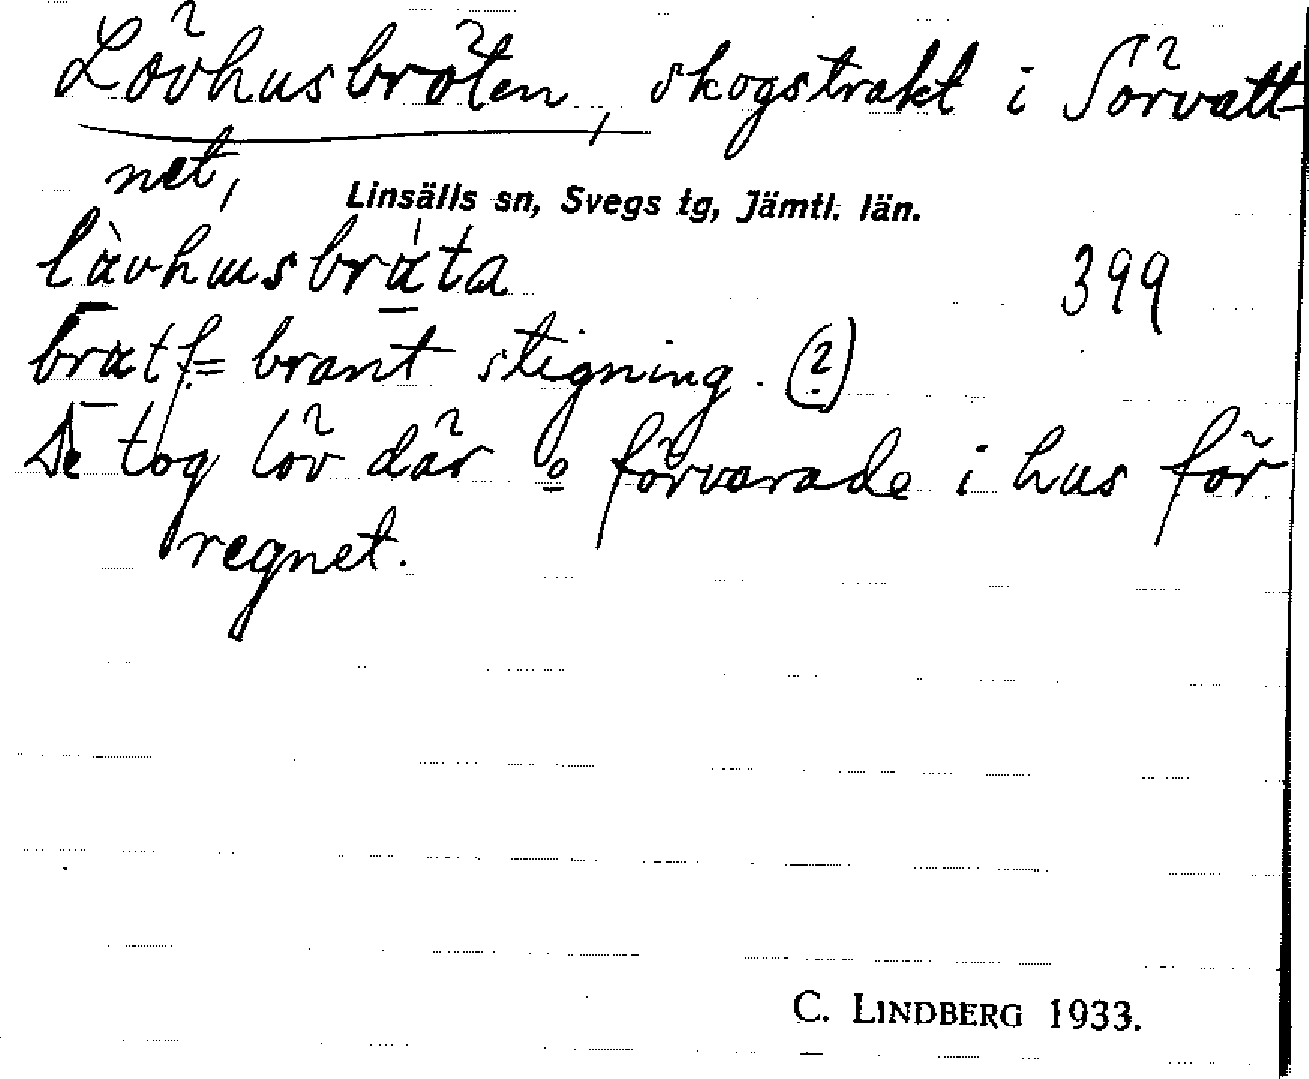 Lövhusbröten, skogstrakt i Sörvatt-
net,
Linsälls sn, Svegs tg, Jämtl. län.
399
bratf = brant stigning. (?)
De tog löv där o förvarade i hus för
regnet.
C. LINDBERG 1933.